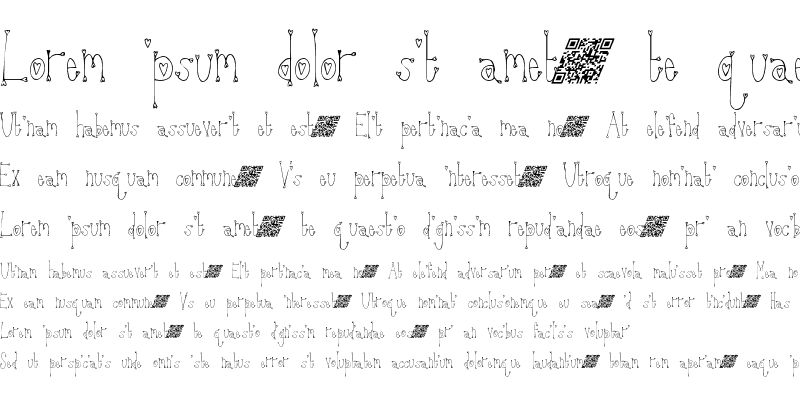 Lorem ipsum dolor sit amet te quae
Utinam habemus assueverit et est Elit pertinacia mea no At eleifend adversariu
Ex eam nusquam commune Vis eu perpetua interesset Utroque nominati conclusio
Lorem ipsum dolor sit amet te quaestio dignissim repudiandae eos pri an vocib
Utinam habemus assueverit et est Elit pertinacia mea no At eleifend adversarium per et scaevola maluisset pro Mea no
Ex eam nusquam commune Vis eu perpetua interesset Utroque nominati conclusionemque eu sea id sit error tincidunt Has
Lorem ipsum dolor sit amet te quaestio dignissim repudiandae eos pri an vocibus facilisis voluptar
Sed ut perspiciatis unde omnis iste natus error sit voluptatem accusantium doloremque laudantium totam rem aperiam eaque ip